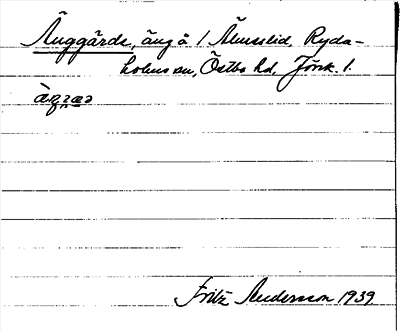 Änggärde, äng å 1 Älmeslid, Ryda-
holms sn, Östbo hd, Jönk. l.
Fritz Andersson 1939